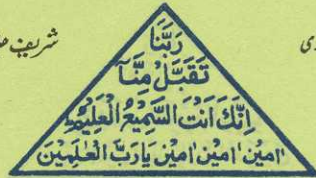 رَبَّنَا
تَقَبَّلْ مِنَّآ
اِنَّكَ اَنْتَ السَّمِیْعُ الْعَلِیْمُ
اٰمِیْن اٰمِیْن اٰمِیْن یَا رَبَّ الْعٰلَمِیْنَ
شریف